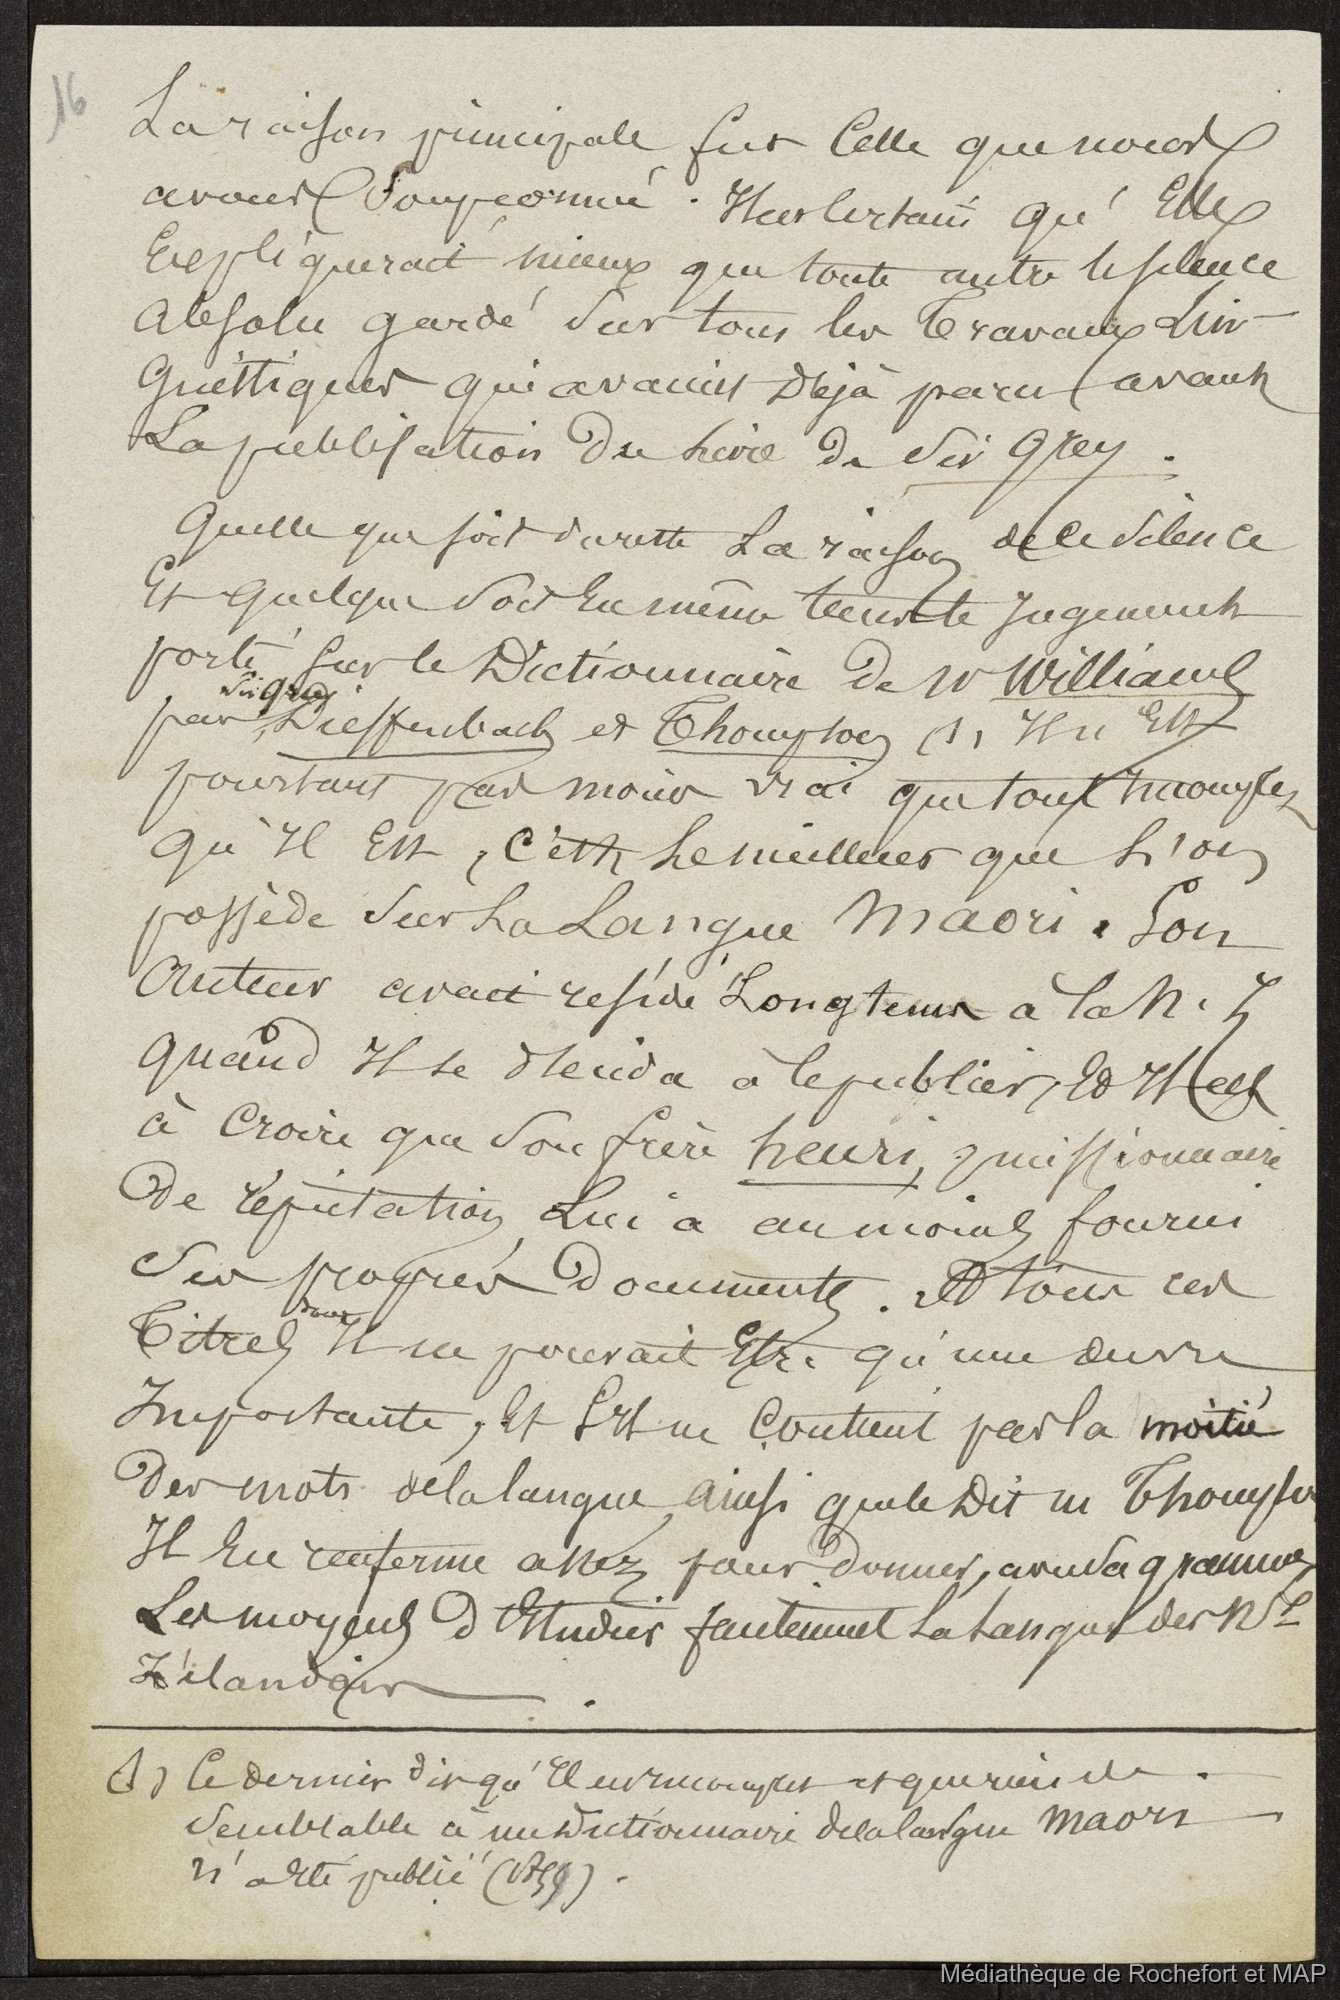 16
La raison principale fut Celle que nous
avons soupçonné. Il est certain qu'Elle
Expliquerait mieux que toute autre le silence
Absolu gardé sur tous les Travaux Lin-
Guistiques qui avaient Déjà paru avant
La publication Du Livre de Sir Grey.
Quelle que soit du reste La raison de ce silence
Et quelque soit En même tems le Jugement
porté sur le Dictionnaire De W Williams
Sir Grey
par Dieffenbach et Thompson (1) Il n'Est
pourtant pas moins vrai que tout incomplet
qu'Il Est, C'est Le meilleur que L'on
possède sur La Langue Maori. Son
Auteur avait résidé Longtems à la N. Z
quand Il se décida à le publier, Et Il est
à Croire que Son frère henri, missionnaire
De réputation Lui a au moins fourni
Ses propres Documents. A tous ces
Titres donc Il ne pouvait Etre qu'une œuvre
Importante, Et S'Il ne Contient pas la moitié
Des mots de la langue ainsi que le Dit m Thompson
Il En renferme assez pour Donner, avec sa gramme
Les moyens D'Etudier facilement La Langue des Nls
Zélandais.
(1) Ce dernier dit qu'Il est incomplet et que rien de
Semblable à un Dictionnaire de la langue Maori
n'a Eté publié (1859).
Médiathèque de Rochefort et MAP